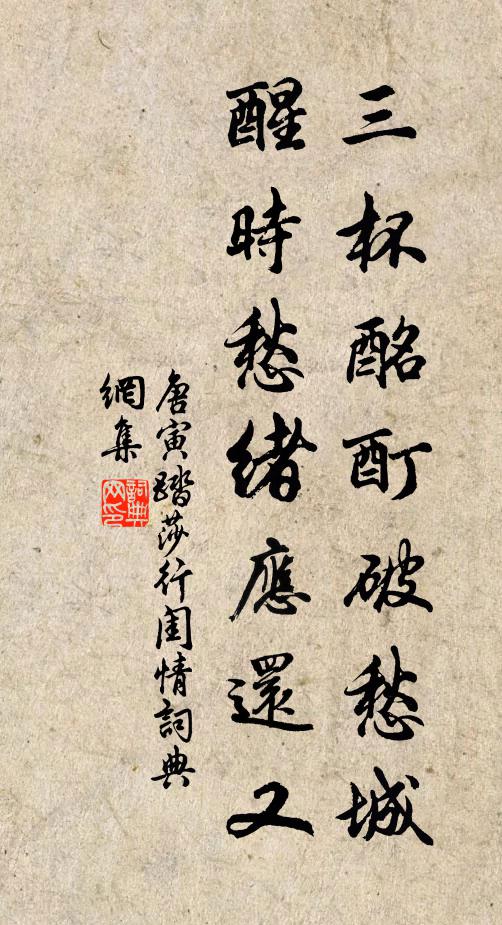 三杯酩酊破愁城
醒時愁緒應還又
唐寅踏莎行閨情詞典
網集
詞典
网印